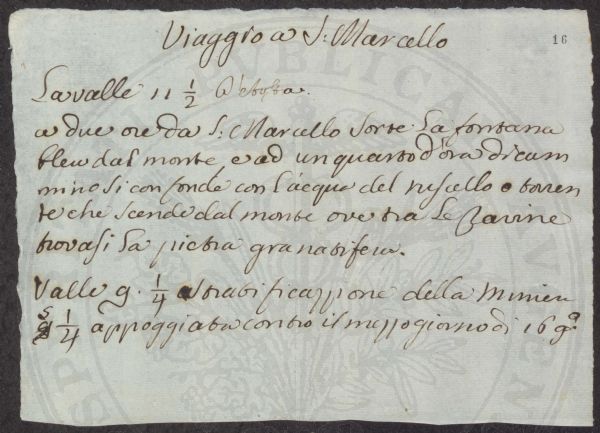 Viaggio a S: Marcello
16
La valle 11 1/2
a due ore da S: Marcello sorte la fontana
bleu dal monte, e ad un quarto d'ora di cam
mino si confonde con l'acqua del ruscello o torren
te che scende dal monte ove tra le ravine
trovasi la pietra granatifera.
Valle 9. 1/4 stratificazzione della Minier
1/4 appoggiata contro il mezzogiorno di 16 g.a